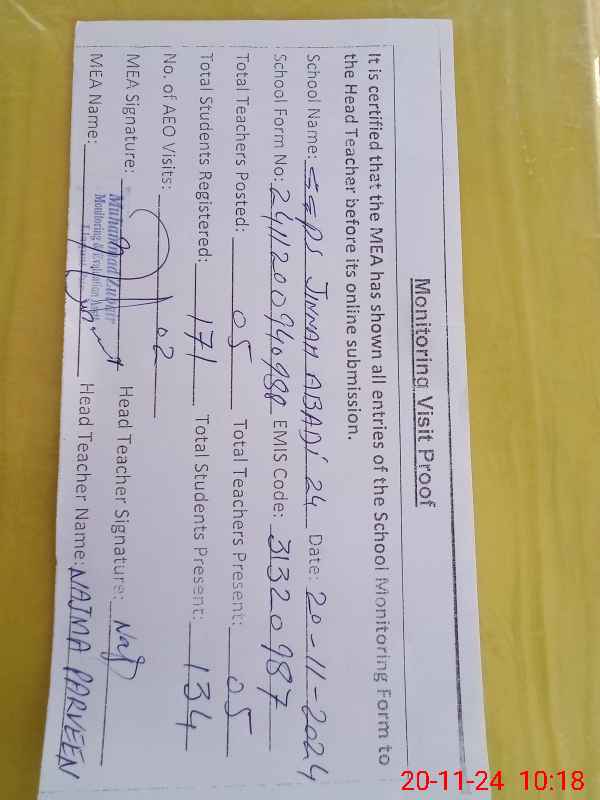 Monitoring Visit Proof
It is certified that the MEA has shown all entries of the School Monitoring Form to
the Head Teacher before its online submission.
School Name: GGPS JINNAH ABADI 24 Date: 20-11-2024
School Form No: 2411200940988 EMIS Code: 31320987
Total Teachers Posted: 05 Total Teachers Present: 05
Total Students Registered: 171 Total Students Present: 134
No. of AEO Visits: 02
MEA Signature: Head Teacher Signature: Naj
Muhammad Zubair
Monitoring & Evaluation
MEA Name: Head Teacher Name: NAJMA PARVEEN
20-11-24 10:18